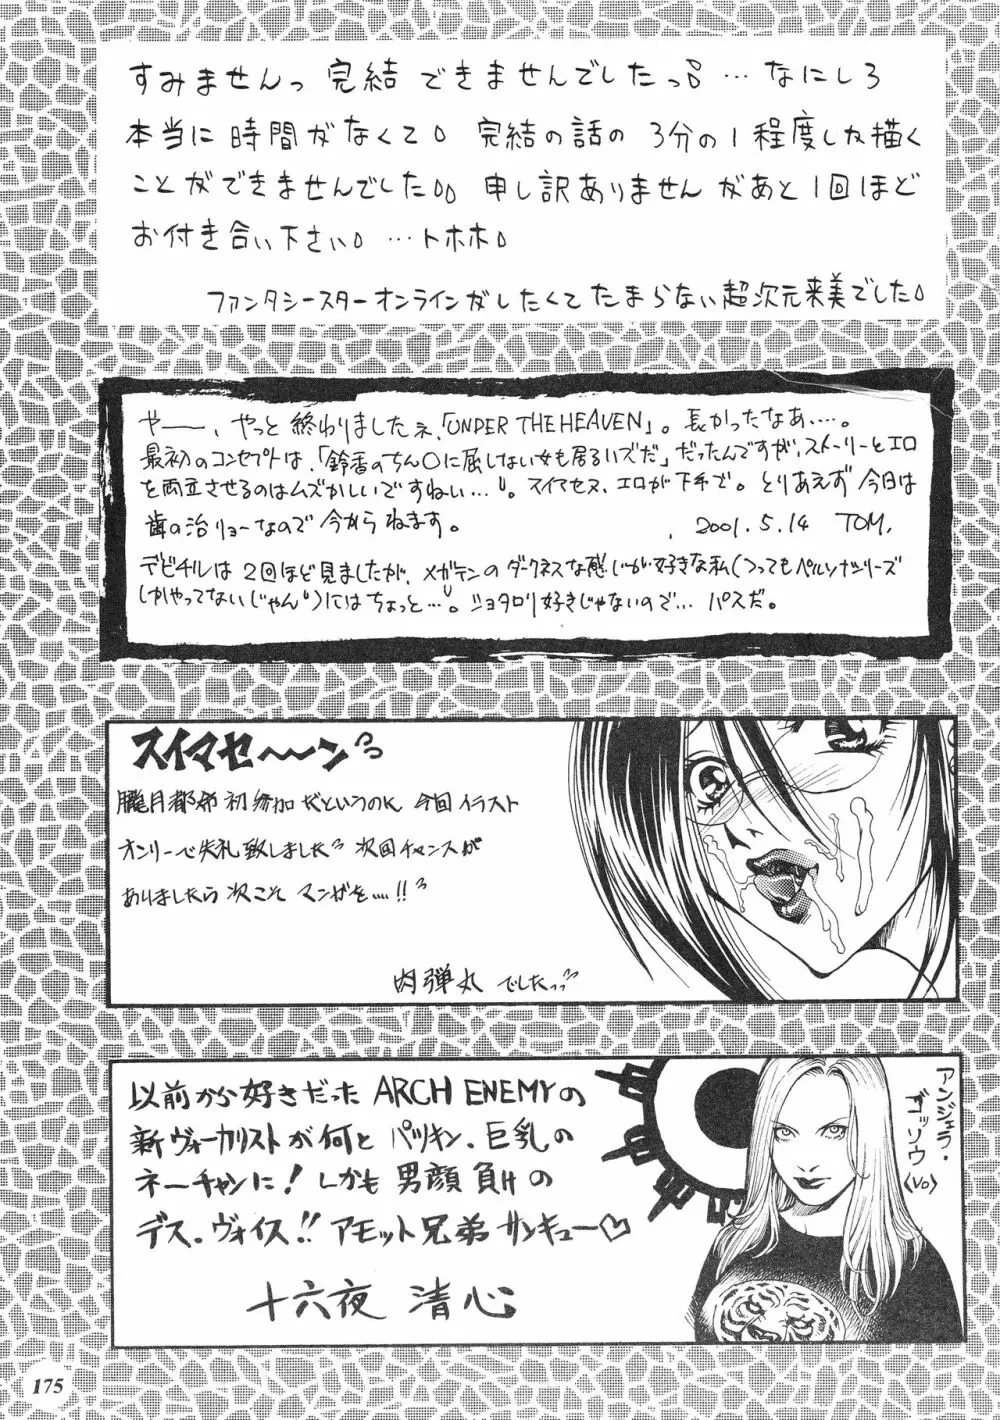 すみませんっ 完結 できませんでしたっ。… なにしろ
本当に 時間がなくて。 完結の話の 3分の1程度しか描く
ことができませんでした。。 申し訳ありません があと1回ほど
お付き合い下さい。 …トホホ。
ファンタシースターオンラインがしたくてたまらない超次元来美でした。
やー、やっと 終わりましたネ、「UNDER THE HEAVEN」。長かったなあ……。
最初のコンセプトは、「鈴香のちん〇に屈しない女も居るハズだ」だったんですが、ストーリーとエロ
を両立させるのはムズかしいですねい…。スイマセヌ、エロが下手で。とりあえず今日は
歯の治リョーなので今からねます。
2001.5.14 TOM.
デビチルは 2回ほど見ましたが、メガテンのダークネスな感じが好きな私(つってもペルソナシリーズ
しかやってないじゃん)にはちょっと…。ショタロリ好きじゃないので… パスだ。
スイマセ〜〜ンっ
朧月都市初参加だというのに 今回イラスト
オンリーで失礼致しました 次回チャンスが
ありましたら 次こそ マンガを……!!
肉弾丸 でしたっっ
以前から好きだった ARCH ENEMYの
新ヴォーカリストが何と パツキン、巨乳の
ネーチャンに! しかも 男顔負けの
デス・ヴォイス!! アモット兄弟サンキュー♡
十六夜 清心
アンジェラ・
ゴッソウ
〈Vo〉
175